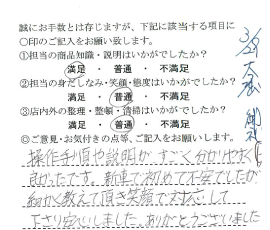 誠にお手数とは存じますが、下記に該当する項目に
○印のご記入をお願い致します。
①担当の商品知識・説明はいかがでしたか？
満足 ・ 普通 ・ 不満足
②担当の身だしなみ・笑顔・態度はいかがでしたか？
満足 ・ 普通 ・ 不満足
③店内外の整理・整頓・清掃はいかがでしたか？
満足 ・ 普通 ・ 不満足
◎ご意見・お気付きの点等、ご記入をお願いします。
操作手順や説明が、すごく分かりやすく
良かったです。新車で初めて不安でしたが
細かく教えて頂き笑顔で対応して
下さり安心しました。ありがとうございました
3/29